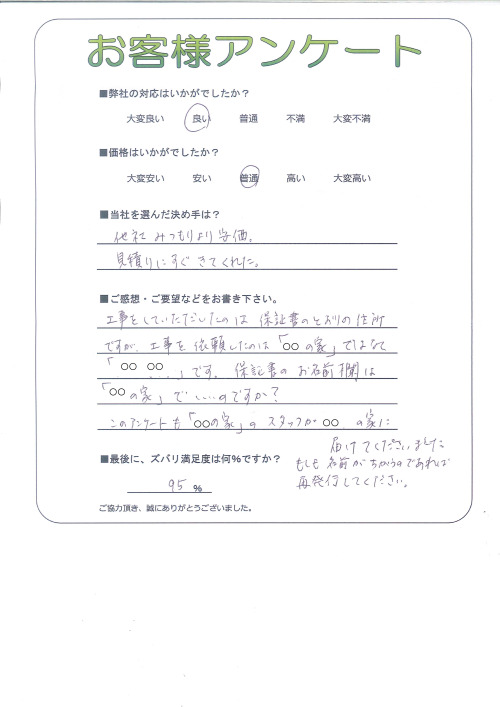 お客様アンケート
■弊社の対応はいかがでしたか？
大変良い 良い 普通 不満 大変不満
■価格はいかがでしたか？
大変安い 安い 普通 高い 大変高い
■当社を選んだ決め手は？
他社 みつもりより安価。
見積りにすぐ きてくれた。
■ご感想・ご要望などをお書き下さい。
工事をしていただいたのは 保証書のとおりの住所
ですが、工事を依頼したのは「○○の家」ではなく
「○○ ○○...」です。保証書の お名前欄は
「○○の家」で いいのですか？
このアンケートも「○○の家」の スタッフが ○○ の家に
届けてくださいました
もしも 名前が ちがうのであれば
再発行してください。
■最後に、ズバリ満足度は何％ですか？
95 ％
ご協力頂き、誠にありがとうございました。